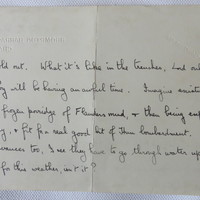 ld out. What it's like in the trenches, Lord only
will be having an awful time. Imagine
frozen porridge of Flanders mud, & then being
, & fit for a real good bit of Hun bombardment.
too, I see they have to go through water up
for this weather, isn't it?